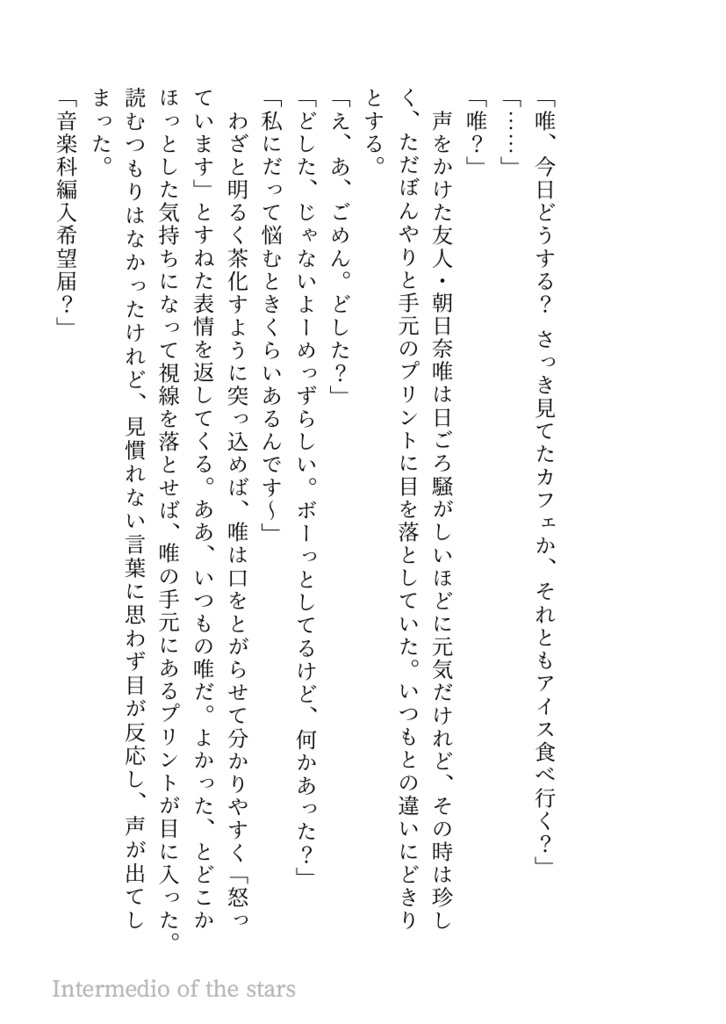 「唯、今日どうする？ さっき見てたカフェか、それともアイス食べ行く？」
「……」
「唯？」
声をかけた友人・朝日奈唯は日ごろ騒がしいほどに元気だけれど、その時は珍し
く、ただぼんやりと手元のプリントに目を落としていた。いつもとの違いにどきり
とする。
「え、あ、ごめん。どした？」
「どした、じゃないよーめっずらしい。ボーっとしてるけど、何かあった？」
「私にだって悩むときくらいあるんです～」
わざと明るく茶化すように突っ込めば、唯は口をとがらせて分かりやすく「怒っ
ています」とすねた表情を返してくる。ああ、いつもの唯だ。よかった、とどこか
ほっとした気持ちになって視線を落とせば、唯の手元にあるプリントが目に入った。
読むつもりはなかったけれど、見慣れない言葉に思わず目が反応し、声が出てし
まった。
「音楽科編入希望届？」
Intermedio of the stars